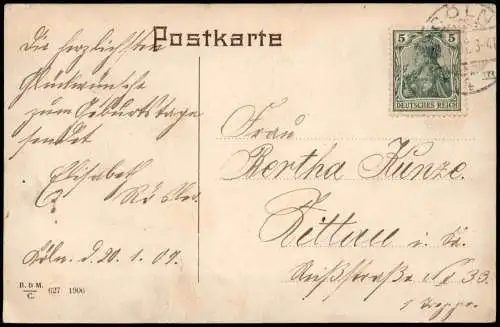 Postkarte
Die herzlichsten
Glückwünsche
zum Geburtstage
sendet
Elisabeth
Cöln. d. 20. 1. 09.
R. & M.
C. 627 1906
CÖLN
5 5
DEUTSCHES REICH
Frau
Bertha Kunze.
Zittau i. Sa.
Reißstraße No 33.
1 Treppe.